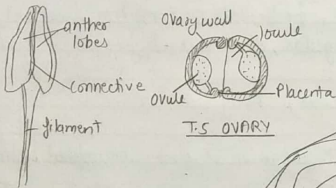 anther
lobes
connective
filament
Ovary wall
locule
Ovule
Placenta
T.S OVARY